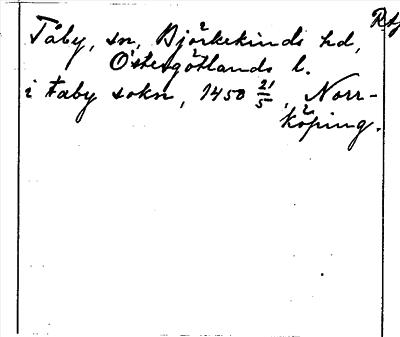 Rtj
Tåby, sn, Björkekinds hd,
Östergötlands l.
i taby sokn, 1450 21/5, Norr-
köping.